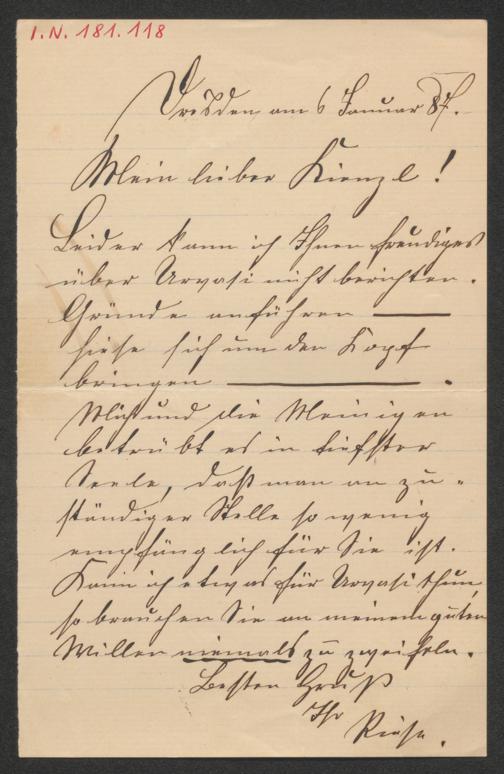 I.N. 181.118
Dresden, am 6 Januar 87.
Mein lieber Kienzl!
Leider kann ich Ihnen freudiges
über Urvasi nicht berichten.
Gründe anführen ———
hieße sich um den Kopf
bringen ——————.
Mich und die Meinigen
betrübt es in tiefster
Seele, daß man an zu-
ständiger Stelle so wenig
empfänglich für Sie ist.
Kann ich etwas für Urvasi thun,
so brauchen Sie an meinem guten
Willen niemals zu zweifeln.
Besten Gruß
Ihr
Riese.